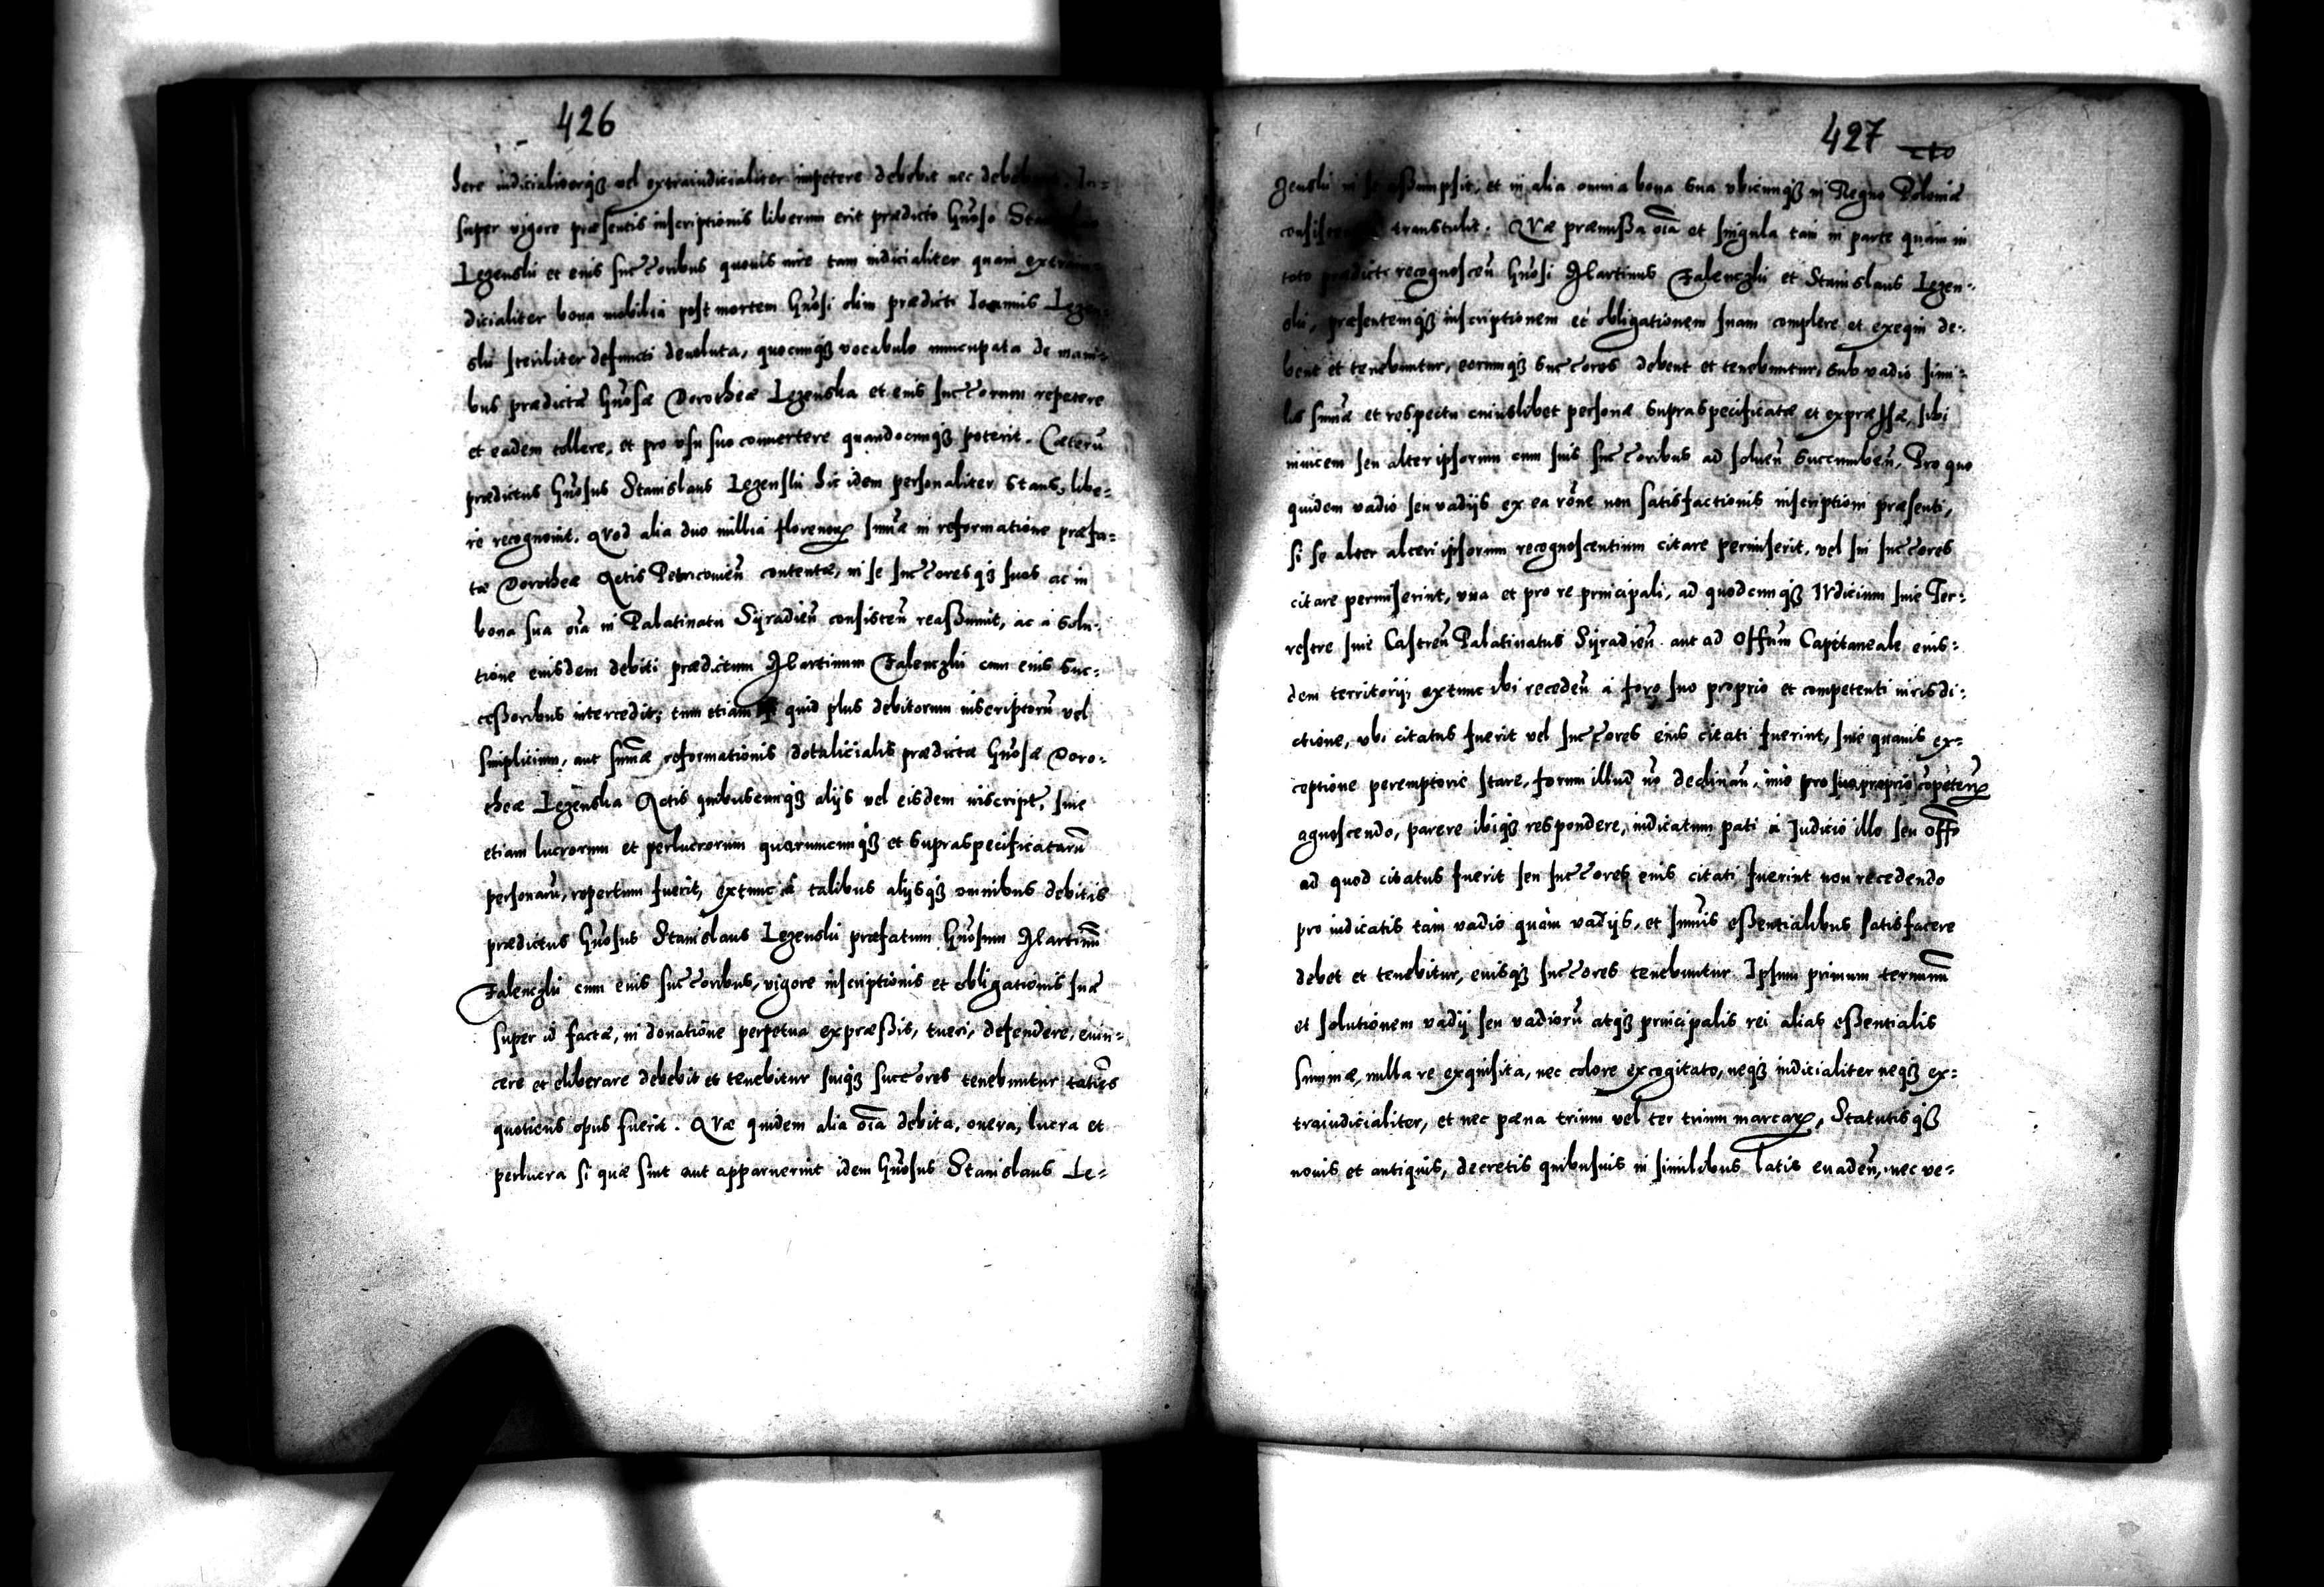 426
bere iudicialiterqꝫ vel extraiudicialiter impetere debebit nec debebunt. In=
super vigore præsentis inscriptionis liberum erit prædicto Gn̄oso Stanislao
Lezenski et eius succ̄oribus quouis iure tam iudicialiter quam extraiu=
dicialiter bona mobilia post mortem Gn̄osi olim prædicti Ioannis Lezen=
ski steriliter defuncti deuoluta, quocunqꝫ vocabulo nuncupata de mani=
bus prædictæ Gn̄osæ Dorotheæ Lezenska et eius succ̄orum repetere
et eadem tollere, et pro vsu suo conuertere quandocunqꝫ poterit. Cæterū
prædictus Gn̄osus Stanislaus Lezenski hic idem personaliter stans, libe=
re recognouit. QVod alia duo millia florenoꝝ sum̄æ in reformatione præfa=
tæ Dorotheæ Actis Petricouień contentæ, in se succ̄oresqꝫ suos ac in
bona sua oīa in Palatinatu Syradień consisteń reassumit, ac a solu=
tione eiusdem debiti prædictum Martinum Zalenczki cum eius suc=
cessoribus intercedit; tum etiam quid plus debitorum inscriptorū vel
simplicium, aut sum̄æ reformationis dotalicialis prædictæ Gn̄osæ Doro=
theæ Lezenska Actis quibuscunqꝫ alijs vel eisdem inscript, siue
etiam lucrorum et perlucrorum quorumcunqꝫ et supraspecificatarū
personarū, repertum fuerit, extunc a talibus alijsqꝫ omnibus debitis
prædictus Gn̄osus Stanislaus Lezenski præfatum Gn̄osum Martinū
Zalenczki cum eius succ̄oribus, vigore inscriptionis et obligationis suæ
super id factæ, in donatione perpetua expræssis, tueri, defendere, euin=
cere et eliberare debebit et tenebitur suiqꝫ succ̄ores tenebuntur toties
quoties opus fuerit. QVæ quidem alia oīa debita, onera, lucra et
perlucra si quæ sint aut apparuerint idem Gn̄osus Stanislaus Le=
427
zenski in se assumpsit, et in alia omnia bona sua vbicunqꝫ in Regno Poloniæ
transtulit. QVæ præmissa oīa et singula tam in parte quam in
toto prædicti recognosceń Gn̄osi Martinus Zalenczki et Stanislaus Lezen=
ski, præsentemqꝫ inscriptionem et obligationem suam complere et exequi de=
bent et tenebuntur, eorumqꝫ succ̄ores debent et tenebuntur, sub vadio simi=
lis sum̄æ et respectu cuiuslibet personæ supraspecificatæ et expræssæ, sibi
inuicem seu alter ipsorum cum suis succ̄oribus ad solueń succumbeń. Pro quo
quidem vadio seu vadijs ex ea rōne non satisfactionis inscriptioni præsenti,
si se alter alteri ipsorum recognoscentium citare permiserit, vel sui succ̄ores
citare permiserint, vna et pro re principali, ad quodcunqꝫ IVdicium siue Ter=
restre siue Castreń Palatinatus Syradień aut ad Offīum Capitaneale eius=
dem territorij, extunc ibi recedeń a foro suo proprio et competenti iurisdi=
ctione, vbi citatus fuerit vel succ̄ores eius citati fuerint, sine quauis ex=
ceptione peremptorie stare, forum illud nō declinań, imo pro suo proprio cōpeteń
agnoscendo, parere ibiqꝫ respondere, iudicatum pati a Judicio illo seu off̄o
ad quod citatus fuerit seu succ̄ores eius citati fuerint non recedendo
pro iudicatis tam vadio quam vadijs, et sum̄is essentialibus satisfacere
debet et tenebitur, eiusqꝫ succ̄ores tenebuntur Ipsum primum terminū
et solutionem vadij seu vadiorū atqꝫ principalis rei alias essentialis
summæ, nulla re exquisita, nec colore excogitato, neqꝫ iudicialiter neqꝫ ex=
traiudicialiter, et nec pæna trium vel ter trium marcaꝝ, Statutisqꝫ
nouis et antiquis, decretis quibusuis in similibus latis euadeń, nec ve=